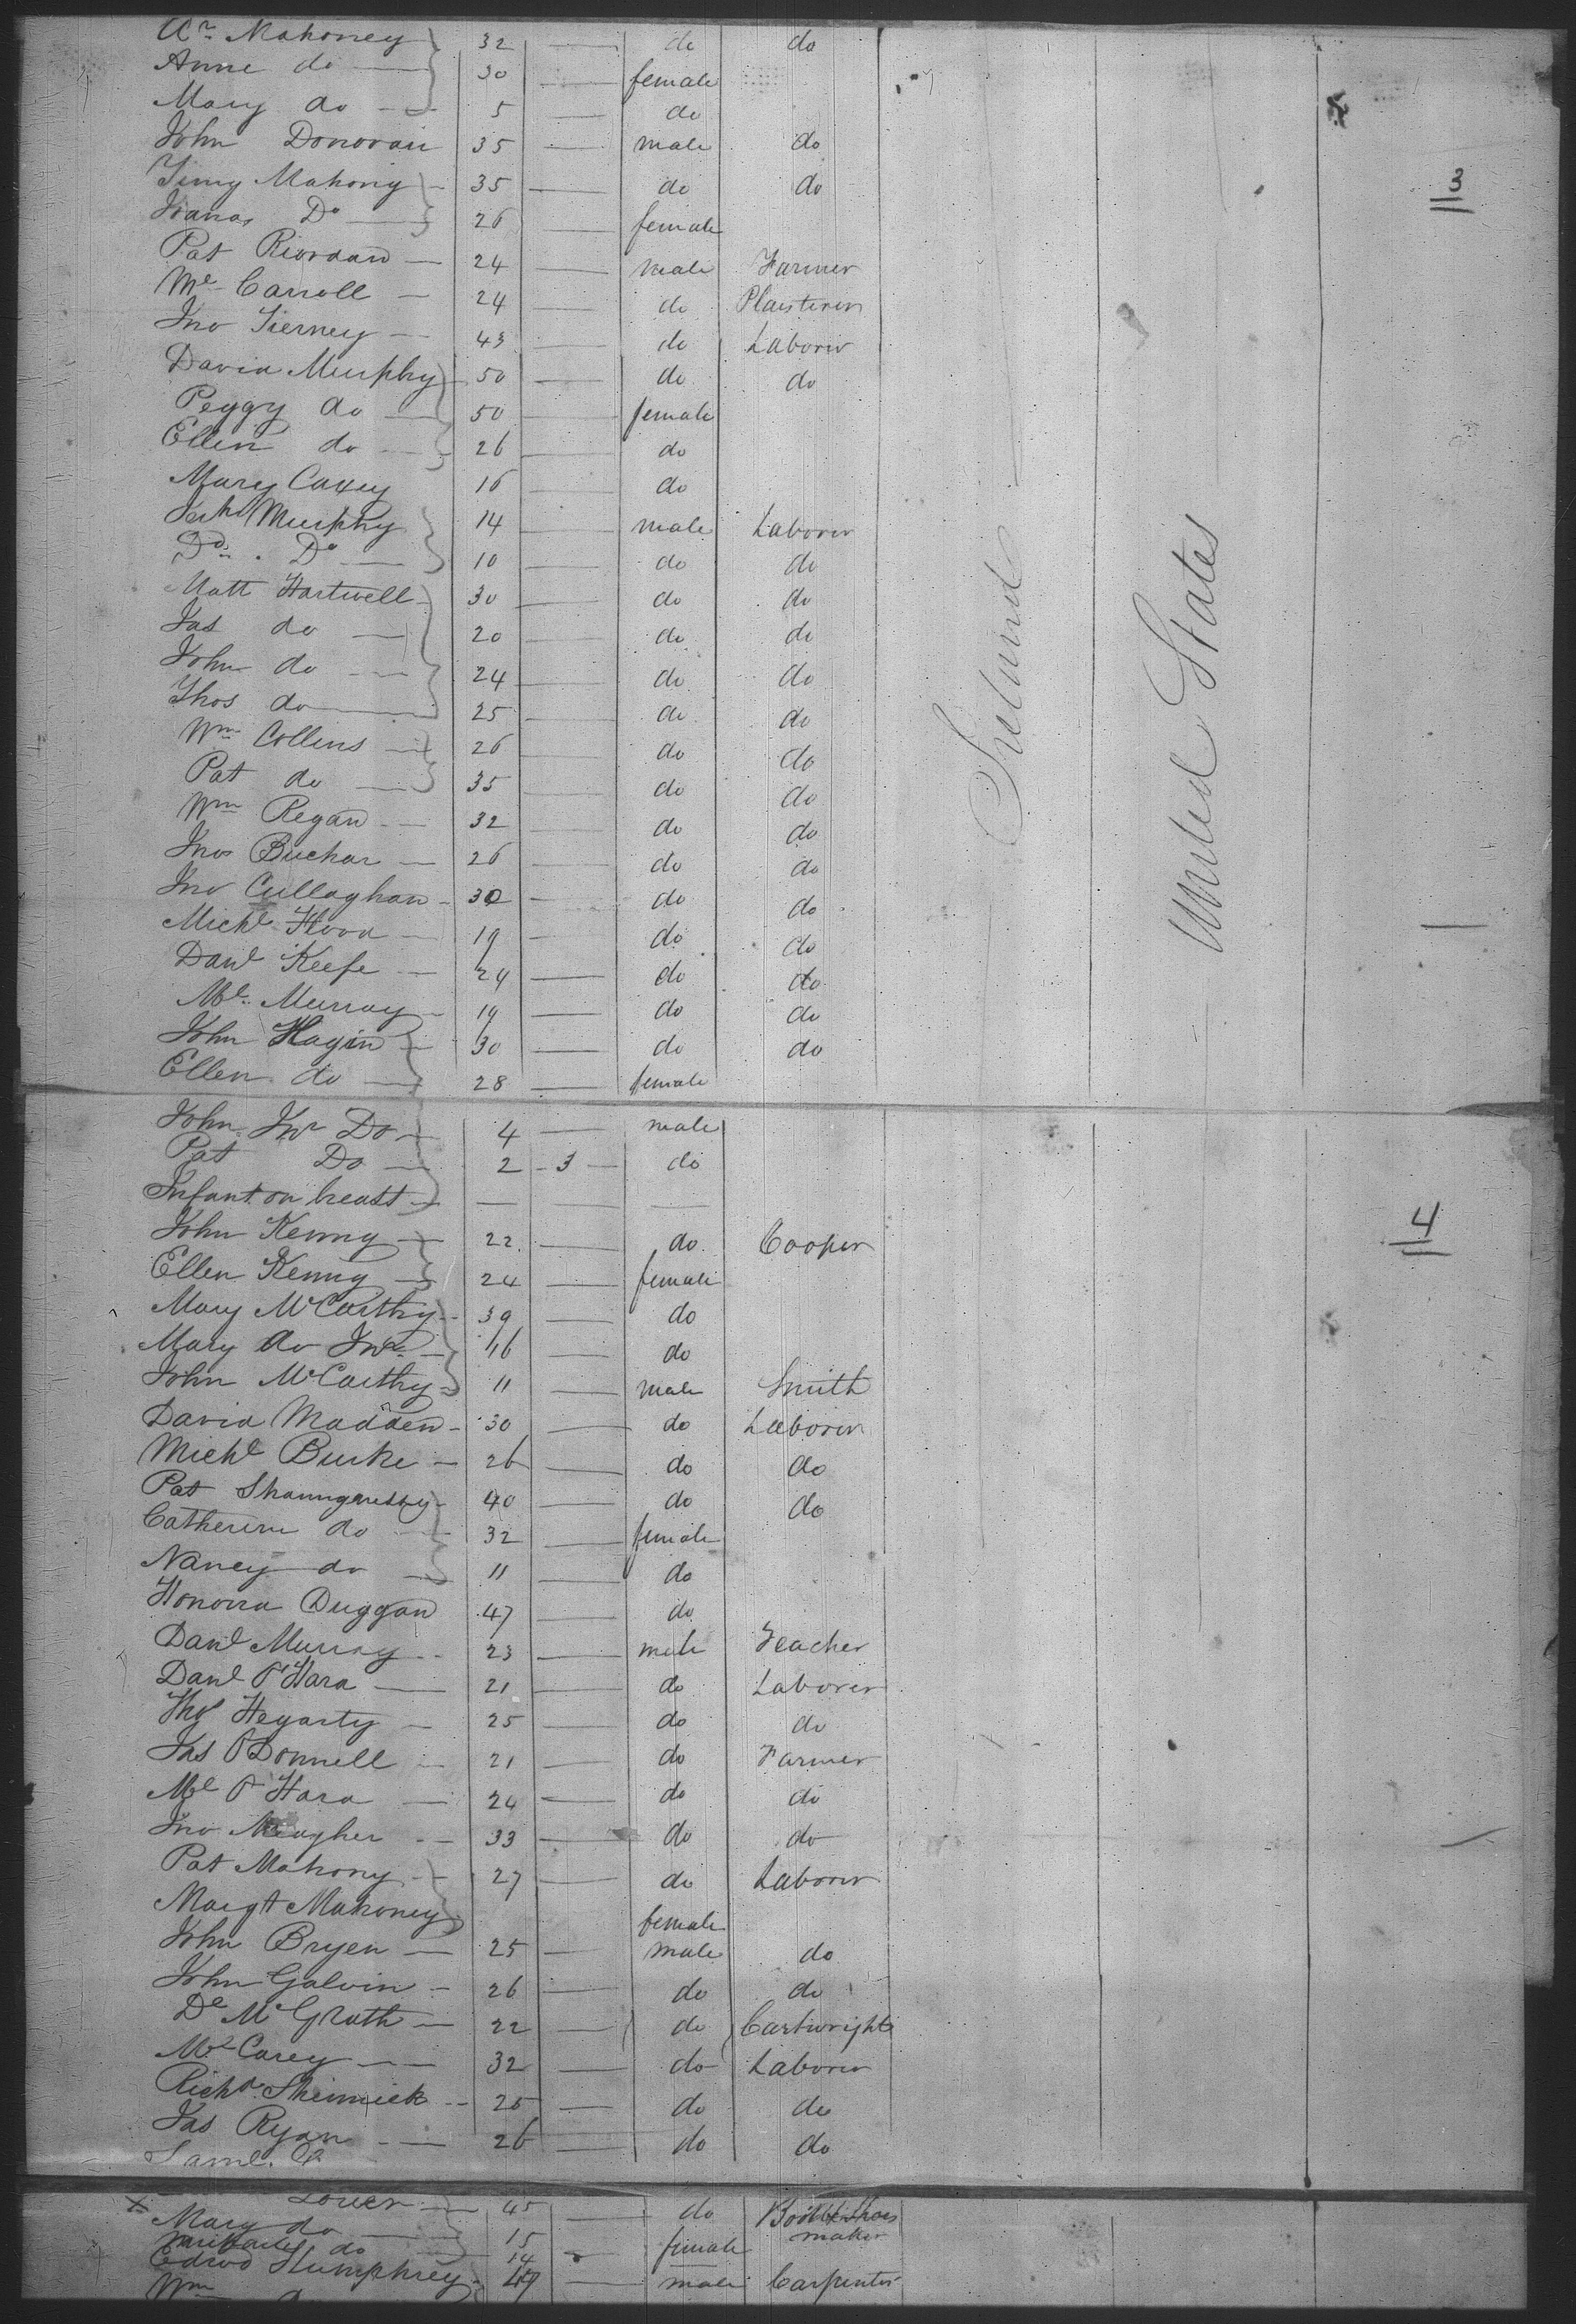 Mahoney 32 do do
Anne do 30 female
Mary do 5 do
John Donovan 35 male do
Mahony 35 do do
3
Do 26 female
Pat Riordan 24 male Farmer
Ml Carroll 24 do Plaisterer
Jno Tierney 43 do Laborer
David Murphy 50 do do
Peggy do 50 female
Ellen do 26 do
Mary 16 do
Murphy 14 male Laborer
Do Do 10 do do
Matt Hartwell 30 do do
Jas do 20 do do
John do 24 do do
Thos do 25 do do
Wm Collins 26 do do
Pat do 35 do do
Wm Regan 32 do do
Jno Buchar 26 do do
Ireland
United States
Jno Cullaghan 30 do do
Michl Hood 19 do do
Danl Keefe 24 do do
Ml Murray 19 do do
John Hagin 30 do do
Ellen do 28 female
John Jnr Do 4 male
Pat Do 2 3 do
Infant on breast
4
John Kenny 22 do Cooper
Ellen Kenny 24 female
Mary McCarthy 39 do
Mary do Jnr 16 do
John McCarthy 11 male Smith
David Madden 30 do Laborer
Michl Burke 26 do do
Pat 40 do do
Catherine do 32 female
Nancy do 11 do
Honora Duggan 47 do
Danl Murray 23 male Teacher
Danl O'Hara 21 do Laborer
Thos Hegarty 25 do do
Jas O'Donnell 21 do Farmer
Ml O'Hara 24 do do
Jno Meagher 33 do do
Pat Mahony 27 do Laborer
Margt Mahoney female
John Bryen 25 male do
John Galvin 26 do do
Dl McGrath 22 do Cartwright
Ml Carey 32 do Laborer
Richd 25 do do
Jas Ryan 26 do do
Saml.
45 do Boot & Shoe
Mary do 15 female maker
do 14
Edwd Humphrey 49 male Carpenter
Wm